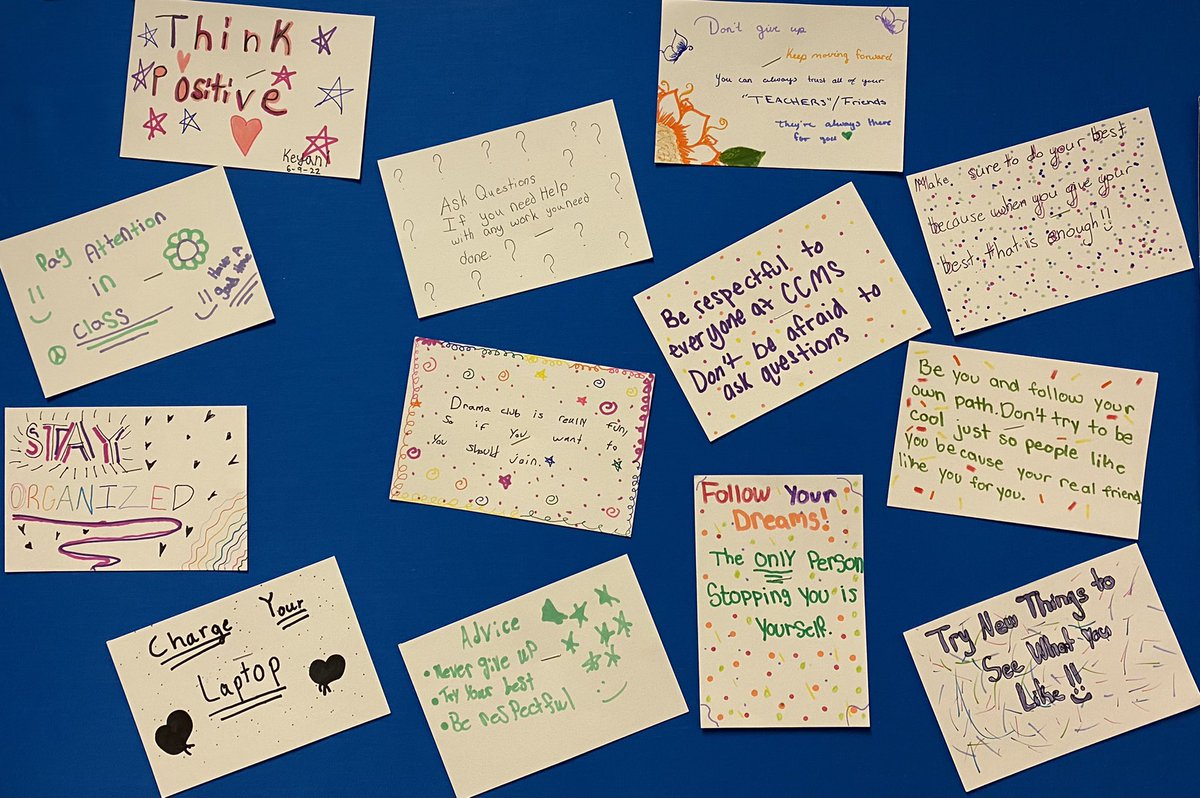 Think
Positive
Keyan
6-9-22
Don't give up
Keep moving forward
You can always trust all of your
"TEACHERS"/Friends
they're always there
for you
Ask Questions
If you need Help
with any work you need
done.
Make sure to do your best
because when you give your
best, that is enough!!
Pay Attention
in
class
Have A
good time
Be respectful to
everyone at CCMS
Don't be afraid to
ask questions
Drama club is really fun,
So if you want to
You should join.
Be you and follow your
own path. Don't try to be
cool just so people like
you because your real friend
like you for you.
STAY
ORGANIZED
Follow Your
Dreams!
The ONLY Person
Stopping you is
yourself.
Charge Your
Laptop
Advice
• Never give up
• Try Your best
• Be respectful
Try New Things to
See What You
Like!!